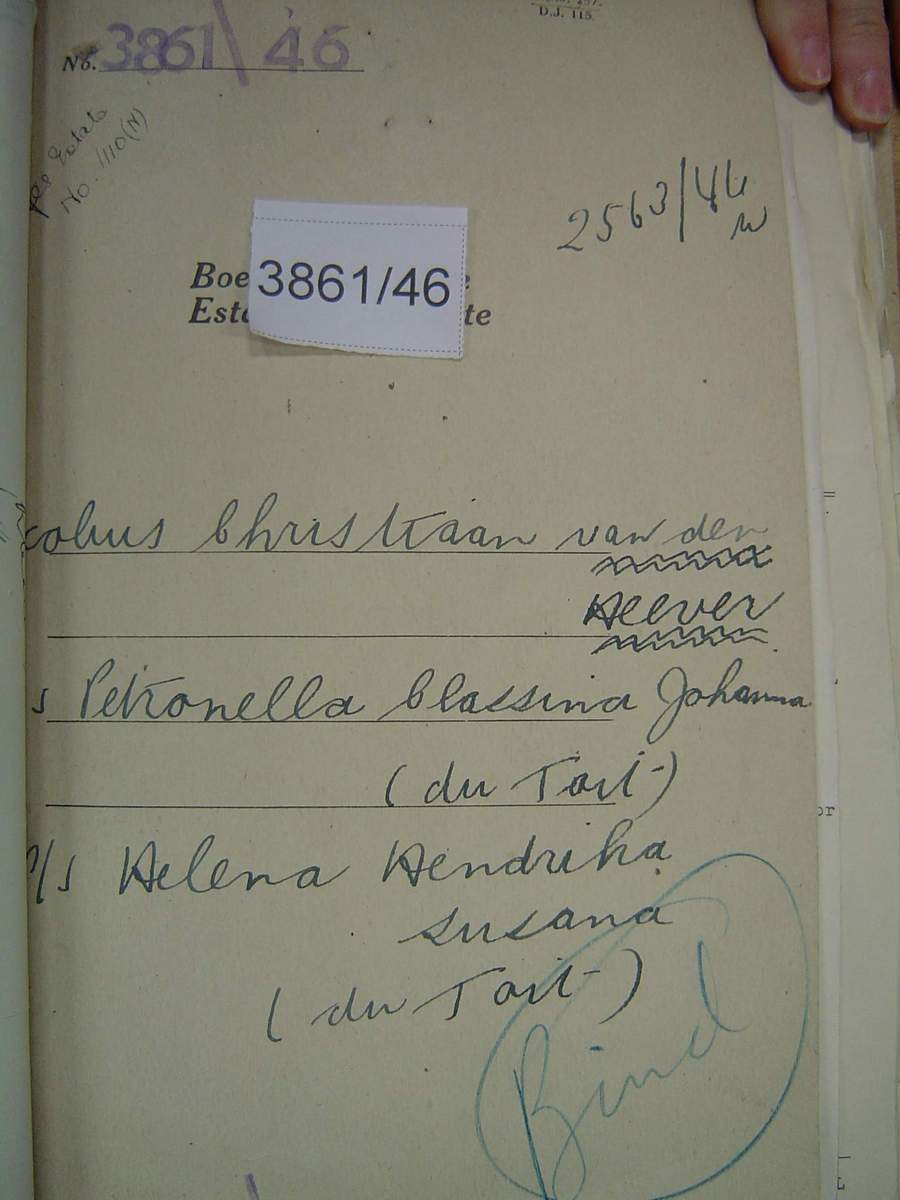 D.J. 115.
No. 3861/46
Estate
No. 1110(N)
2563/44
3861/46
Boe e
Esta te
cobus Christiaan van den
Heever
s Petronella Classina Johanna
(du Toit)
/s Helena Hendrika
Susana
(du Toit)
Bind